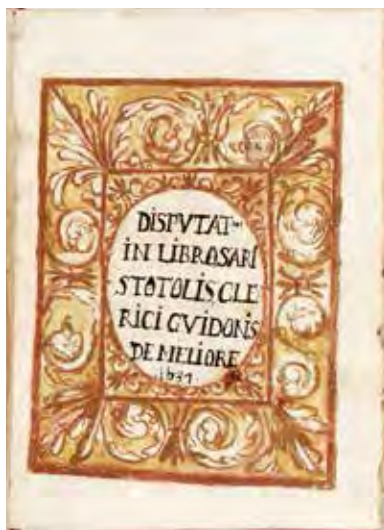 DISPVTAT
IN LIBROSARI
STOTOLIS CLE
RICI GVIDONIS
DE MELIORE